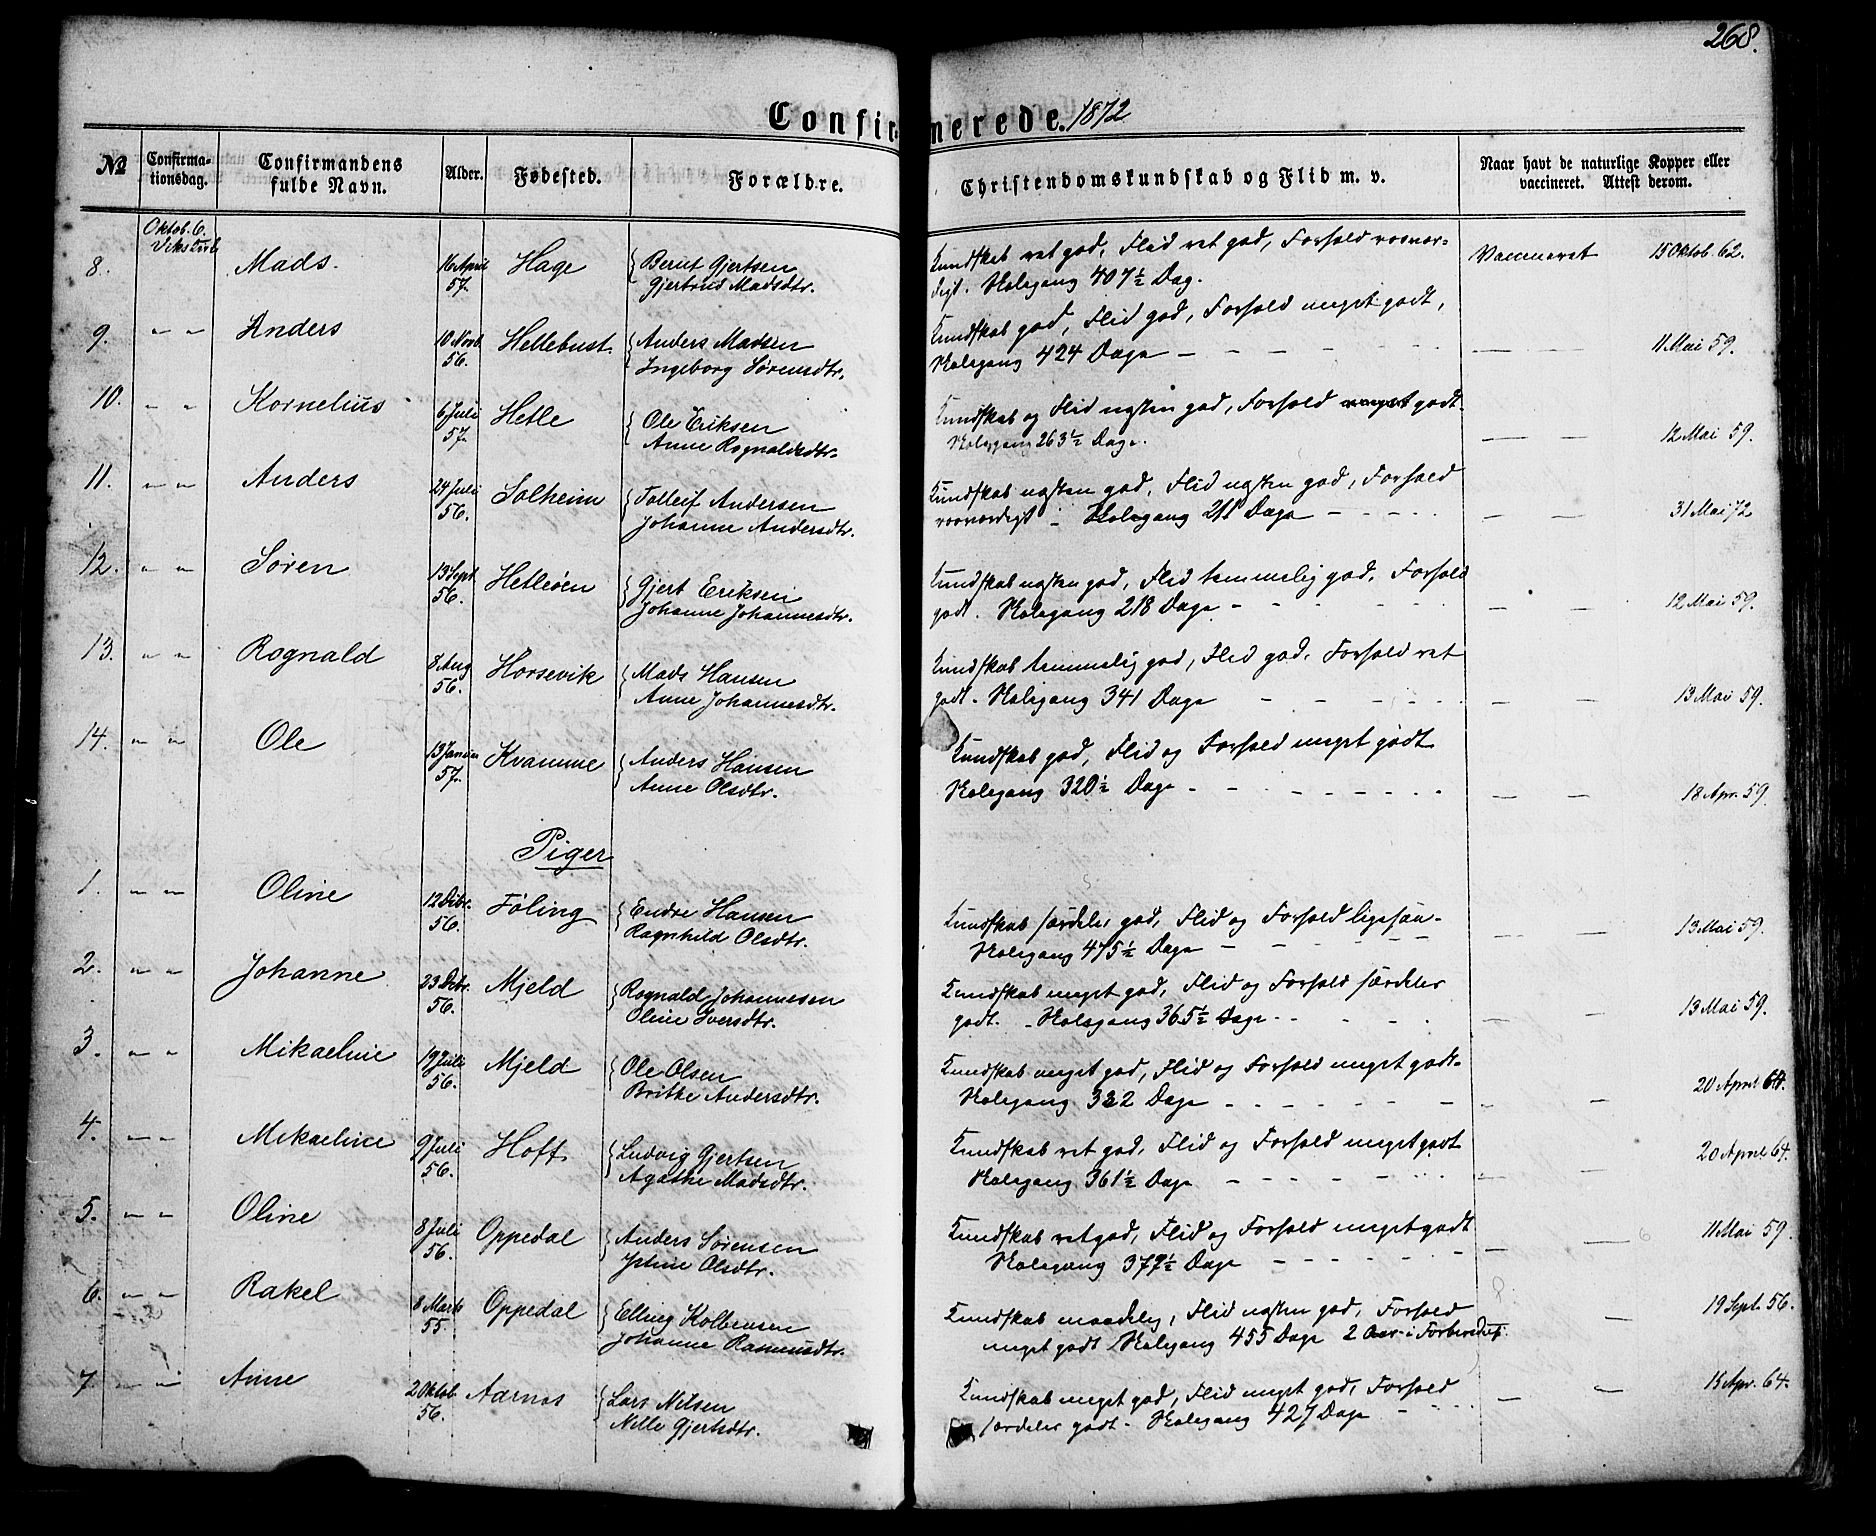 268.
Confirmerede. 1872
No
Confirmationsdag.
Confirmandens fulde Navn.
Alder.
Fødested.
Forældre.
Christendomskundskab og Flid m. v.
Naar havt de naturlige Kopper eller vaccineret. Attest derom.
Oktob. 6.
8. Mads. 16 April 57. Hage { Berut Gjertsen
Gjertrud Madsdtr.
Kundskab ret god, Flid ret god, Forhold rosvær-
digt. Skolegang 407½ Dag. Vaccineret 15 Oktob. 62.
9. " " Anders 10 Novb. 56. Hellebust. { Anders Madsen
Ingeborg Sørensdtr.
Kundskab god, Flid god, Forhold meget godt,
Skolegang 424 Dage — — 11 Mai 59.
10. " " Kornelius 6 Juli 57. Hetle { Ole Eriksen
Anne Rognaldsdtr.
Kundskab og Flid næsten god, Forhold meget godt.
Skolegang 263½ Dage. — — 12 Mai 59.
11. " " Anders 24 Juli 56. Solheim { Tolleif Andersen
Johanne Andersdtr.
Kundskab næsten god, Flid næsten god, Forhold
rosværdigt - Skolegang 211 Dage — — 31 Mai 72
12. " " Søren 13 Sept 56. Hetleøen { Gjert Eriksen
Johanne Johannesdtr.
Kundskab næsten god, Flid temmelig god, Forhold
godt. Skolegang 218 Dage — — 12 Mai 59.
13. " " Rognald 8 Aug 56. Horsevik { Mads Hansen
Anne Johannesdtr.
Kundskab temmelig god, Flid god, Forhold ret
godt. Skolegang 341 Dage — — 13 Mai 59.
14. " " Ole 13 Januar 57. Kvamme { Anders Hansen
Anne Olsdtr.
Kundskab god, Flid og Forhold meget godt
Skolegang 320½ Dage — — 18 Apr. 59.
Piger
1. " " Oline 12 Debr. 56. Føling { Endre Hansen
Ragnhild Olsdtr.
Kundskab særdeles god, Flid og Forhold ligesaa.
Skolegang 475½ Dage — — 13 Mai 59.
2. " " Johanne 23 Debr. 56. Mjeld { Rognald Johannesen
Oline Iversdtr.
Kundskab meget god, Flid og Forhold særdeles
godt. - Skolegang 365½ Dage — — 13 Mai 59.
3. " " Mikaeline 19 Juli 56. Mjeld { Ole Olsen
Brithe Andersdtr.
Kundskab meget god, Flid og Forhold meget godt.
Skolegang 332 Dage — — 20 April 64.
4. " " Mikaeline 9 Juli 56. Hoff { Ludvig Gjertsen
Agathe Madsdtr.
Kundskab ret god, Flid og Forhold meget godt
Skolegang 361½ Dage — — 20 April 64.
5. " " Oline 8 Juli 56. Oppedal { Anders Sørensen
Olsdtr.
Kundskab ret god, Flid og Forhold meget godt
Skolegang 372½ Dage — — 11 Mai 59.
6. " " Rakel 8 Marts 55. Oppedal { Elling Kolbensen
Johanne Rasmusdtr.
Kundskab maadelig, Flid næsten god, Forhold
meget godt Skolegang 455 Dage 2 Aar i Forberedels. — 19 Sept. 56.
7. " " Anne 2 Oktob. 56. Aarnæs { Lars Nilsen
Nille Gjertsdtr.
Kundskab meget god, Flid meget god, Forhold
særdeles godt - Skolegang 427 Dage — — Apr. 64.